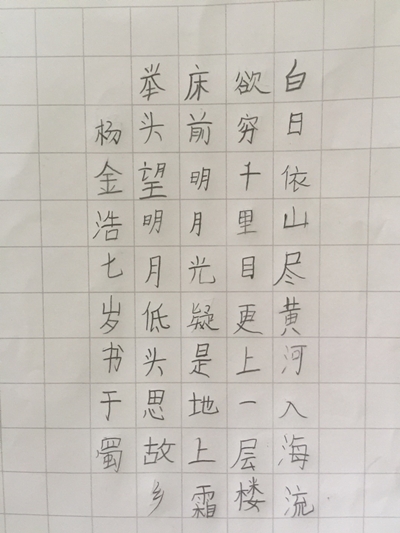 白日依山尽黄河入海流
欲穷千里目更上一层楼
床前明月光疑是地上霜
举头望明月低头思故乡
杨金浩七岁书于蜀